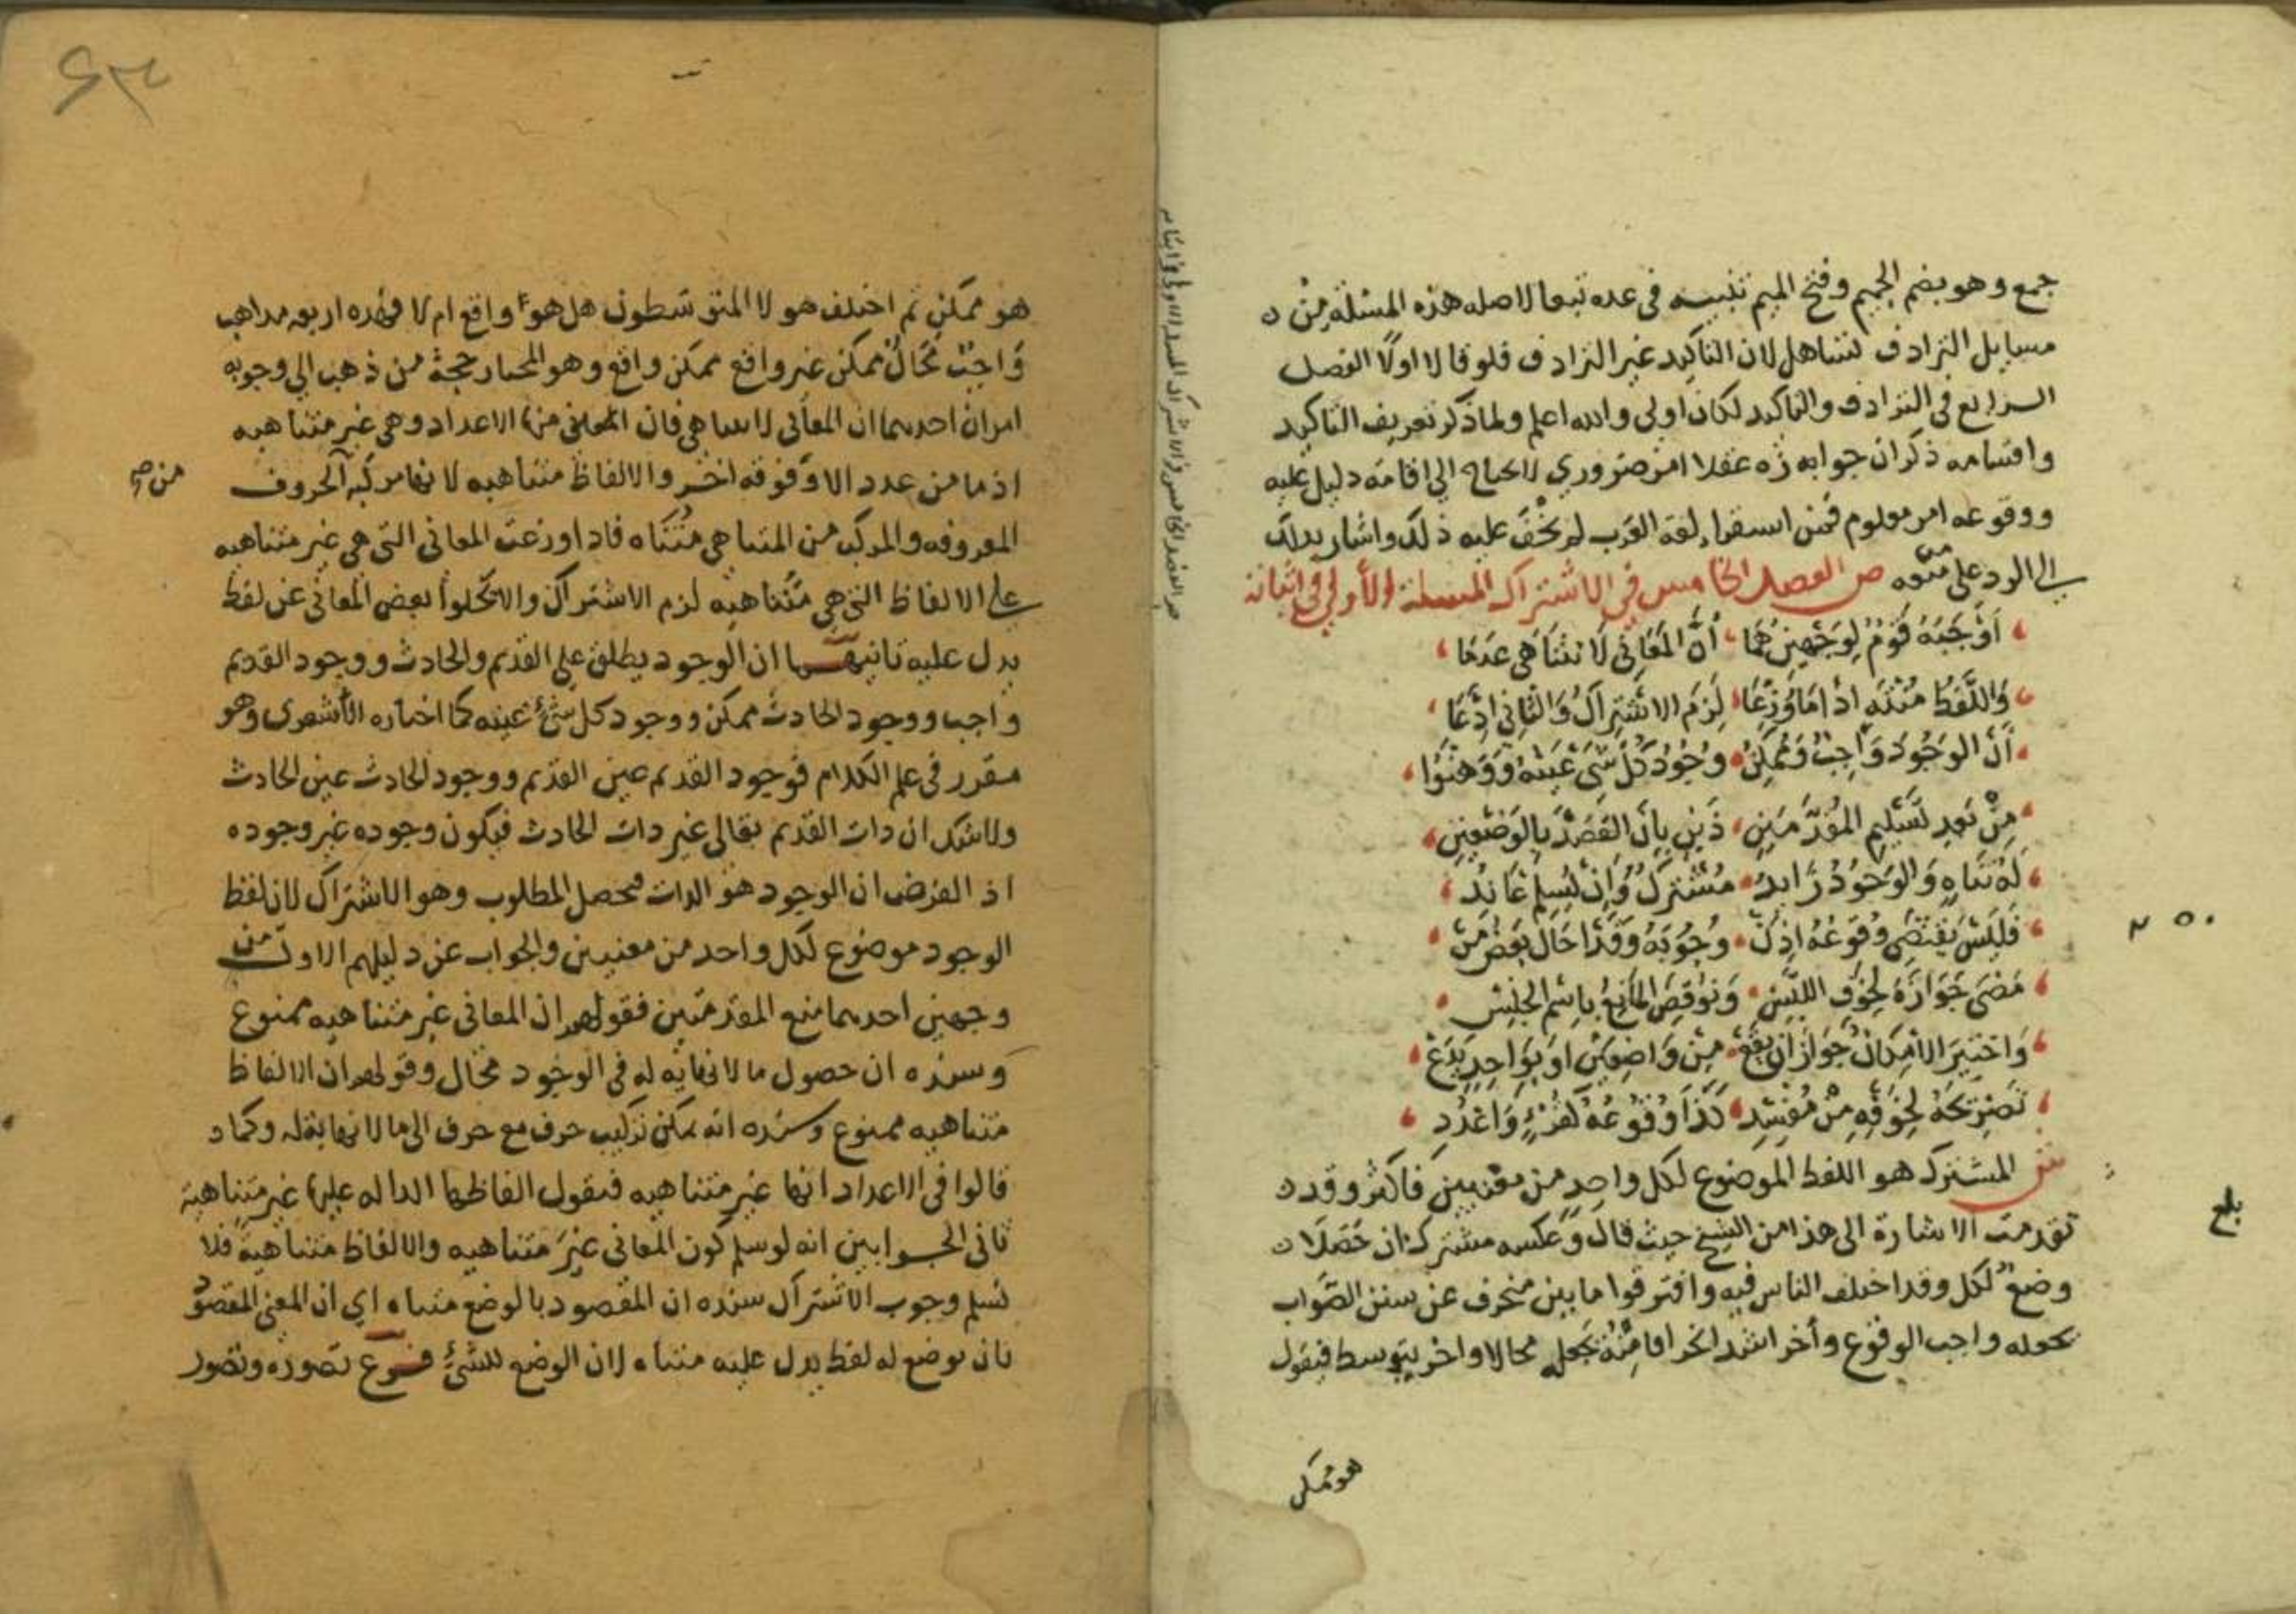 جمع وهو بضم الجيم وفتح الميم تنبيه في عده تبعا لاصله هذه المسئلة من
مسايل الترادف تساهل لان التاكيد غير الترادف فلو قالا اولا الفصل
الرابع في الترادف والتاكيد لكان اولى والله اعلم ولما ذكر تعريف التاكيد
واقسامه ذكر ان جوابه زه عقلا امر ضروري لا يحتاج الى اقامة دليل عليه
ووقوعه امر معلوم فمن استقرا لغة العرب لم يخف عليه ذلك واشار بذلك
الى الرد على من منعه ص الفصل الخامس في الاشتراك المسئلة الأولى في اثباته
أَوْجَبَهُ قَوْمٌ لِوَجْهَيْنِ هُمَا أَنَّ المَعَانِي لَا تَتَنَاهَى عَدَمَا
وَاللَّفْظُ مُنْتَهٍ اذَا مَا وُزِّعَا لَزِمَ الاشْتِرَاكُ وَالثَّانِي ادَّعَا
أَنَّ الوُجُودَ وَاجِبٌ وَمُمْكِنٌ وُجُودُ كُلِّ شَيْ عَيْنُهُ وَوَهَّنُوا
مِنْ بَعْدِ تَسْلِيمِ المُقَدِّمَتَيْنِ ذَيْنِ بِأَنَّ القَصْدَ بِالوَضْعَيْنِ
لَهُ تَنَاهٍ وَالوُجُودُ زَايِدُ مُشْتَرَكٌ وَإِنْ يُسَلَّمْ عَانِدُ
فَلَيْسَ يَقْتَضِي وُقُوعُهُ اذَنْ وُجُوبَهُ وَقَدْ احَالَ بَعْضُ مَنْ
مَضَى جَوَازَهُ لِخَوْفِ اللَّبْسِ وَنُوقِضَ المَانِعُ بِاسْمِ الجِنْسِ
وَاخْتِيرَ الامْكَانُ جَوَازَ ان يَقَعْ مِنْ وَاضِعَيْنِ اوْ بِوَاحِدٍ يَدَعْ
تَصْرِيحَهُ لِخَوْفِهِ مِنْ مُفْسِدِ كَذَا وُقُوعُهُ كَقُرْءٍ وَاعْدُدِ
ش المشترك هو اللفظ الموضوع لكل واحد من معنيين فاكثر وقد
تقدمت الاشارة الى هذا من الشيخ حيث قال وعكسه مشترك ان حصلا
وضع لكل وقد اختلف الناس فيه وافترقوا ما بين منحرف عن سنن الصواب
يجعله واجب الوقوع وآخر اشد انحرافا منه يجعله محالا واخر يتوسط فيقول
هو ممكن
بلغ
هو ممكن ثم اختلف هولا المتوسطون هل هو واقع ام لا فهذه اربعه مذاهب
واجب محال ممكن غير واقع ممكن واقع وهو المختار حجة من ذهب الى وجوبه
امران احدهما ان المعاني لا تتناهى فان المعنى منها الاعداد وهي غير متناهيه
اذ ما من عدد الا وفوقه اخر والالفاظ متناهيه لانها مركبه الحروف
من ص
المعروفه والمركب من المتناهي متناه فاذا وزعت المعاني التي هي غير متناهيه
على الالفاظ التي هي متناهيه لزم الاشتراك والا تخلوا بعض المعاني عن لفظ
يدل عليه ثانيهما ان الوجود يطلق على القديم والحادث ووجود القديم
واجب ووجود الحادث ممكن ووجود كل شئ عينه كما اختاره الأشعرى وهو
مقرر في علم الكلام فوجود القديم عين القديم ووجود الحادث عين الحادث
ولا شك ان ذات القديم تعالى غير ذات الحادث فيكون وجوده غير وجوده
اذ الفرض ان الوجود هو الذات فحصل المطلوب وهو الاشتراك لان لفظ
الوجود موضوع لكل واحد من معنيين والجواب عن دليلهم الاول من
وجهين احدهما منع المقدمتين فقولهم ان المعاني غير متناهيه ممنوع
وسنده ان حصول ما لا نهايه له في الوجود محال وقولهم ان الالفاظ
متناهيه ممنوع وسنده انه يمكن تركيب حرف مع حرف الى ما لا نهاية له وكما
قالوا في الاعداد انها غير متناهيه فنقول الفاظها الداله عليها غير متناهية
ثاني الجوابين انه لو سلم كون المعاني غير متناهيه والالفاظ متناهية فلا
نسلم وجوب الاشتراك سنده ان المقصود بالوضع متناه اي ان المعنى المقصود
بان يوضع له لفظ يدل عليه متناه لان الوضع للشئ فرع تصوره وتصور